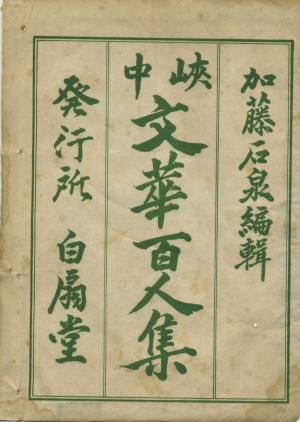 加藤石泉編輯
峽中
文華百人集
発行所 白扇堂